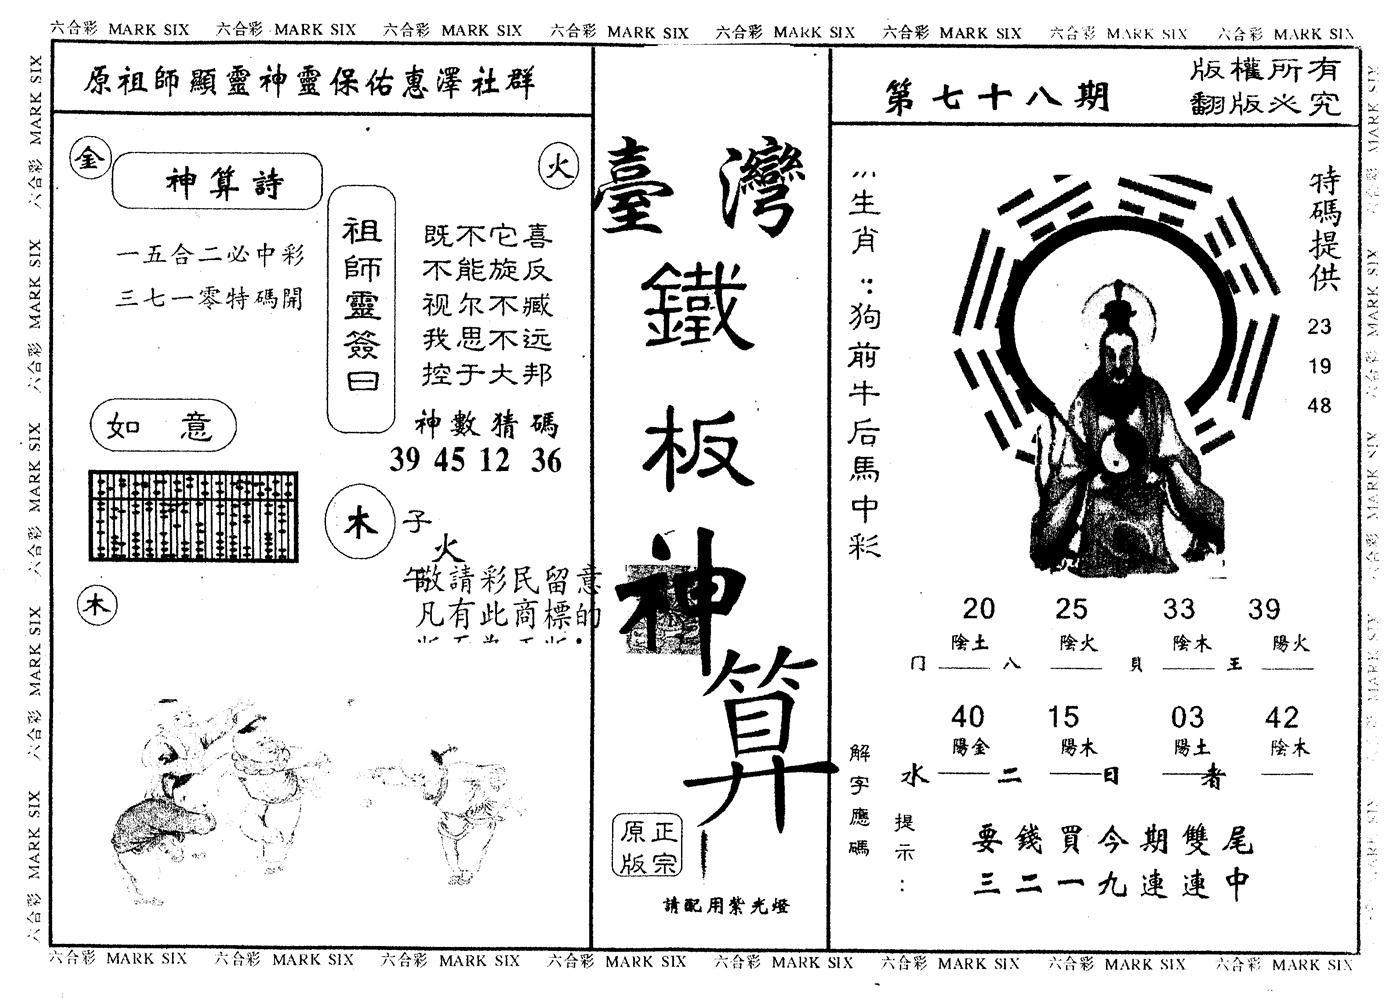 六合彩 MARK SIX 六合彩 MARK SIX 六合彩 MARK SIX 六合彩 MARK SIX 六合彩 MARK SIX 六合彩 MARK SIX 六合彩 MARK SIX 六合彩 MARK SIX
原祖師顯靈神靈保佑惠澤社群
金
神算詩
火
一五合二必中彩
三七一零特碼開
祖師靈簽曰
既不它喜
不能旋反
视尔不臧
我思不远
控于大邦
神數猜碼
39 45 12 36
如意
木
子
火
午
敬請彩民留意
凡有此商標的
木
臺灣
鐵
板
神
算
正宗
原版
請配用紫光燈
第七十八期
版權所有
翻版必究
生肖：狗前牛后馬中彩
特碼提供
23
19
48
20 25 33 39
陰土 陰火 陰木 陽火
门 八 貝 王
40 15 03 42
陽金 陽木 陽土 陰木
水 二 日 者
解字應碼
提示：
要錢買今期雙尾
三二一九連連中
六合彩 MARK SIX 六合彩 MARK SIX 六合彩 MARK SIX 六合彩 MARK SIX 六合彩 MARK SIX 六合彩 MARK SIX 六合彩 MARK SIX 六合彩 MARK SIX
六合彩 MARK SIX 六合彩 MARK SIX 六合彩 MARK SIX 六合彩 MARK SIX 六合彩 MARK SIX